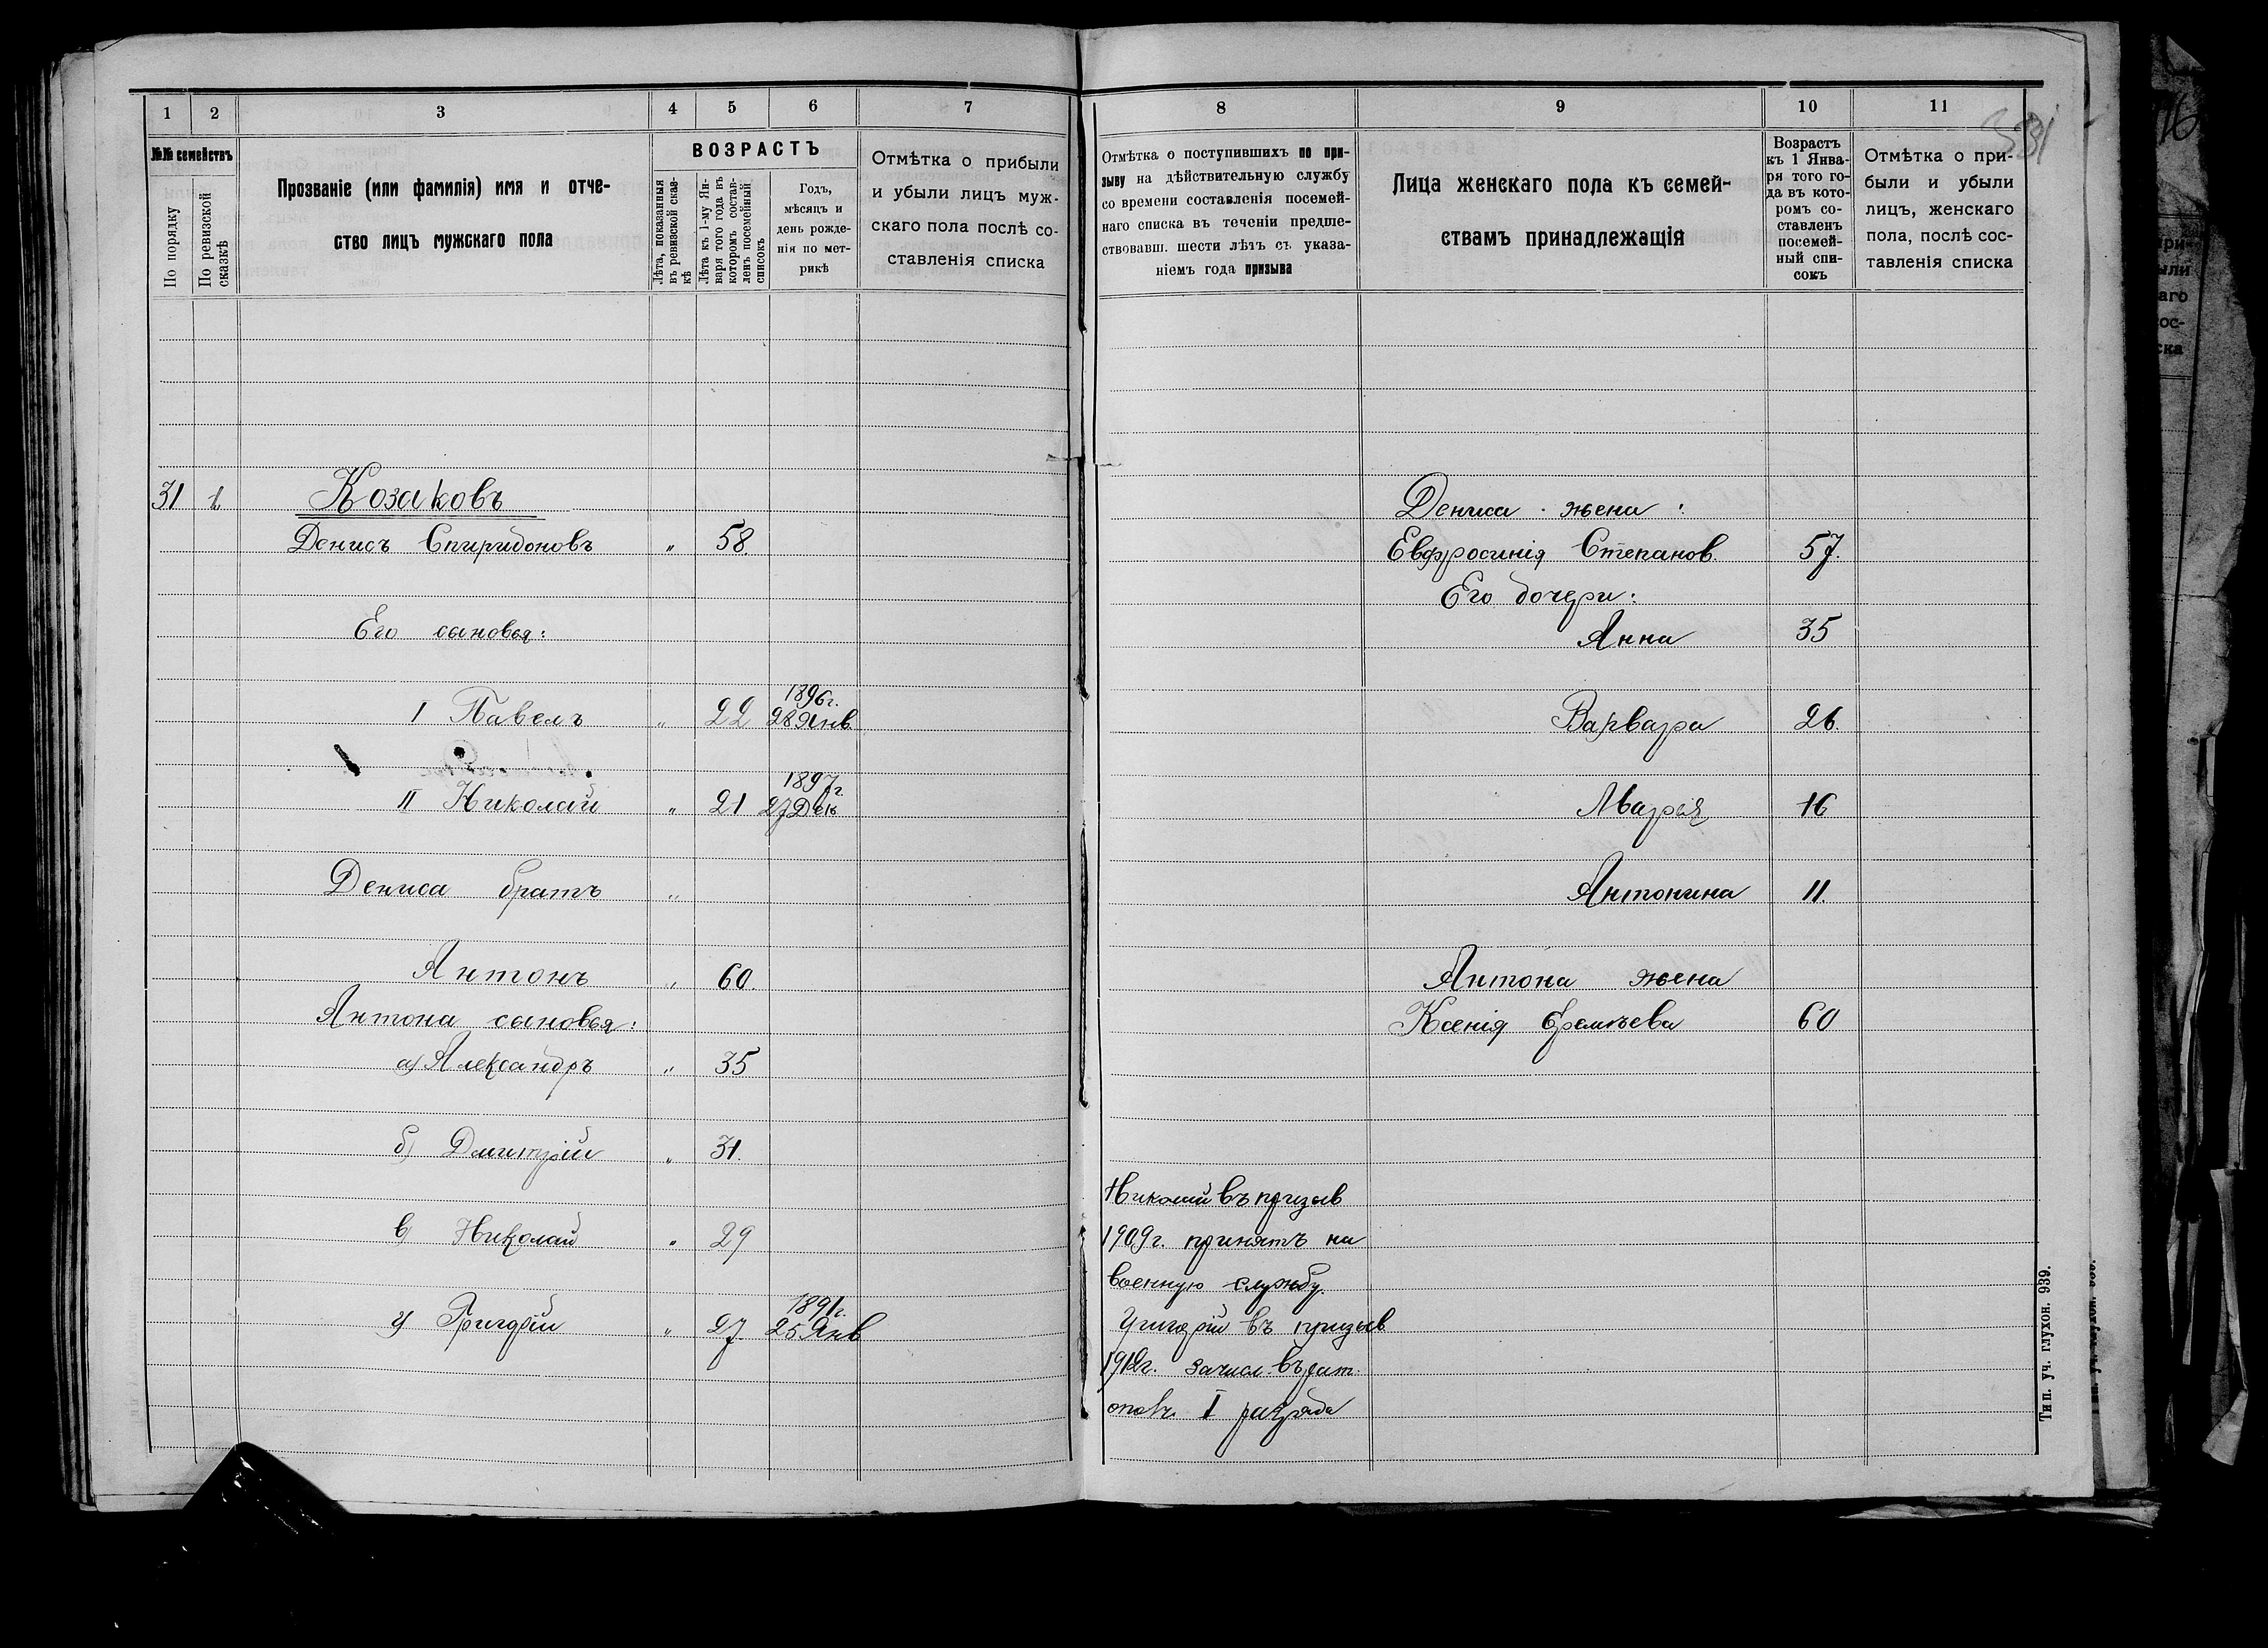 1 2 3 4 5 6 7
№№ семействъ
По порядку
По ревизской сказкѣ
Прозваніе (или фамилія) имя и отче-
ство лицъ мужскаго пола
ВОЗРАСТЪ
Лѣта, показанныя
въ ревизской сказ-
кѣ
Лѣта къ 1-му Ян-
варя того года въ
которомъ состав-
ленъ посемейный
списокъ
Годъ,
мѣсяцъ и
день рожде-
нія по мет-
рикѣ
Отмѣтка о прибыли
и убыли лицъ муж-
скаго пола послѣ со-
ставленія списка
31 Козаковъ
Денисъ Спиридоновъ " 58.
Его сыновья:
1896г.
I Павелъ " 22 28 Янв
1897г.
II Николай " 21 27 Дек
Дениса братъ "
Антонъ " 60
Антона сыновья:
а) Александръ " 35
б) Дмитрій " 31.
в) Николай " 29
1891г.
г) Григорій " 27 25 Янв
8 9 10 11
331
Отмѣтка о поступившихъ по при-
зыву на дѣйствительную службу
со времени составленія посемей-
наго списка въ теченіи предше-
ствовавш. шести лѣтъ съ указа-
ніемъ года призыва
Лица женскаго пола къ семей-
ствамъ принадлежащія
Возрастъ
къ 1 Янва-
ря того го-
да въ кото-
ромъ со-
ставленъ
посемей-
ный спи-
сокъ
Отмѣтка о при-
были и убыли
лицъ, женскаго
пола, послѣ сос-
тавленія списка
Дениса жена:
Евфросинія Степанов. 57.
Его дочери:
Анна 35
Варвара 26.
Марія 16
Антонина 11.
Антона жена
Ксенія Еремѣева 60
Николай въ призыв
1909г. принятъ на
военную службу.
Григорій въ призыв
1912г. зачисл. въ рат.
опол. I разряда
Тип. уч. глухон. 939.
76
при-
ыли
аго
сос-
ска